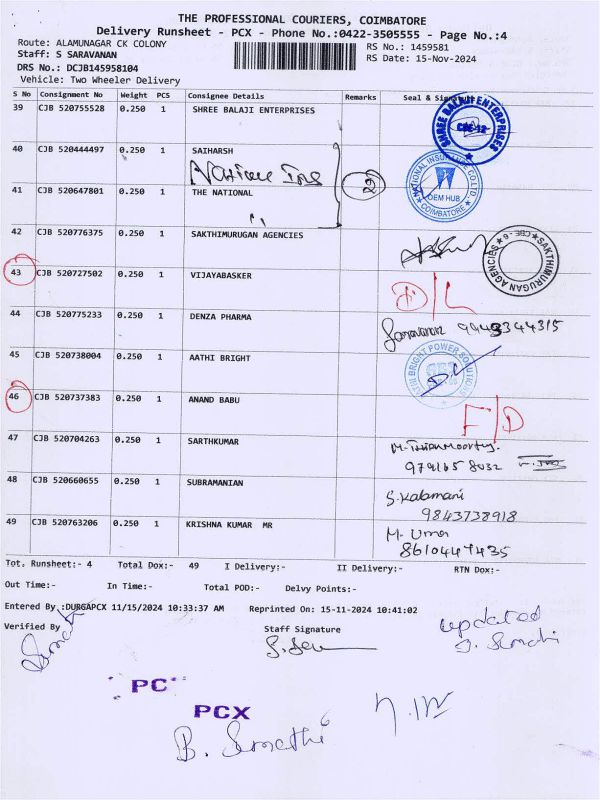 THE PROFESSIONAL COURIERS, COIMBATORE
Delivery Runsheet - PCX - Phone No.:0422-3505555 - Page No.:4
Route: ALAMUNAGAR CK COLONY
RS No.: 1459581
Staff: S SARAVANAN
RS Date: 15-Nov-2024
DRS No.: DCJB145958104
Vehicle: Two Wheeler Delivery
S No Consignment No Weight PCS Consignee Details Remarks Seal &
39 CJB 520755528 0.250 1 SHREE BALAJI ENTERPRISES
SHREE BALAJI ENTERPRISES
CBE-12
40 CJB 520444497 0.250 1 SAIHARSH
NATIONAL INSURANCE CO.LTD.
OEM HUB
COIMBATORE
41 CJB 520647801 0.250 1 THE NATIONAL
2
42 CJB 520776375 0.250 1 SAKTHIMURUGAN AGENCIES
SAKTHIMURUGAN AGENCIES CBE-6
43 CJB 520727502 0.250 1 VIJAYABASKER
D/L
44 CJB 520775233 0.250 1 DENZA PHARMA
Saravanan
45 CJB 520738004 0.250 1 AATHI BRIGHT
BRIGHT POWER SOLUTIONS
46 CJB 520737383 0.250 1 ANAND BABU
F/D
47 CJB 520704263 0.250 1 SARTHKUMAR
48 CJB 520660655 0.250 1 SUBRAMANIAN
S. Kalamani
9843738918
49 CJB 520763206 0.250 1 KRISHNA KUMAR MR
M. Uma
8610447435
Tot. Runsheet:- 4 Total Dox:- 49 I Delivery:- II Delivery:- RTN Dox:-
Out Time:- In Time:- Total POD:- Delvy Points:-
Entered By :DURGAPCX 11/15/2024 10:33:37 AM Reprinted On: 15-11-2024 10:41:02
Verified By Staff Signature
updated
PC
PCX
B. Sumathi